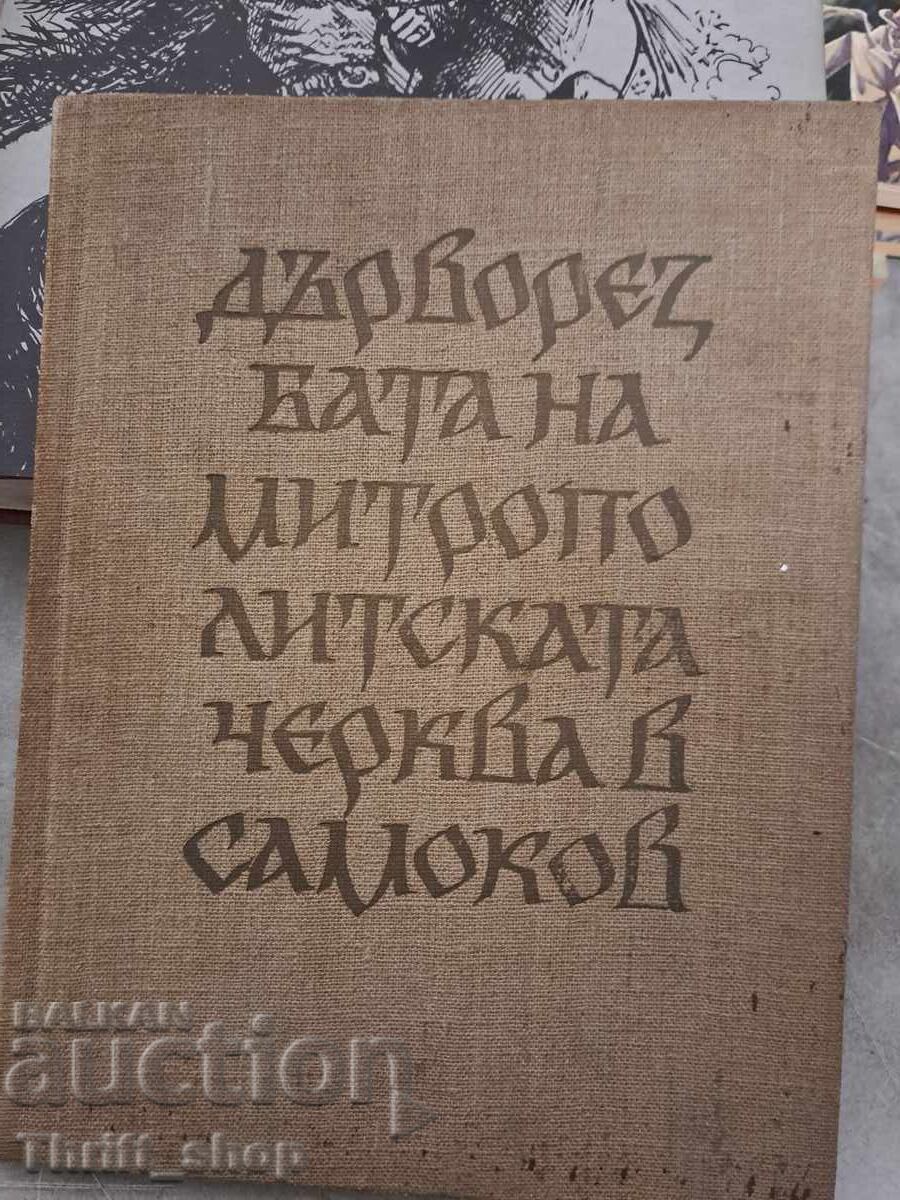 ДЪРВОРЕЗ
БАТА НА
МИТРОПО
ЛИТСКАТА
ЧЕРКВА В
САМОКОВ
BALKAN
auction
Thriff_shop